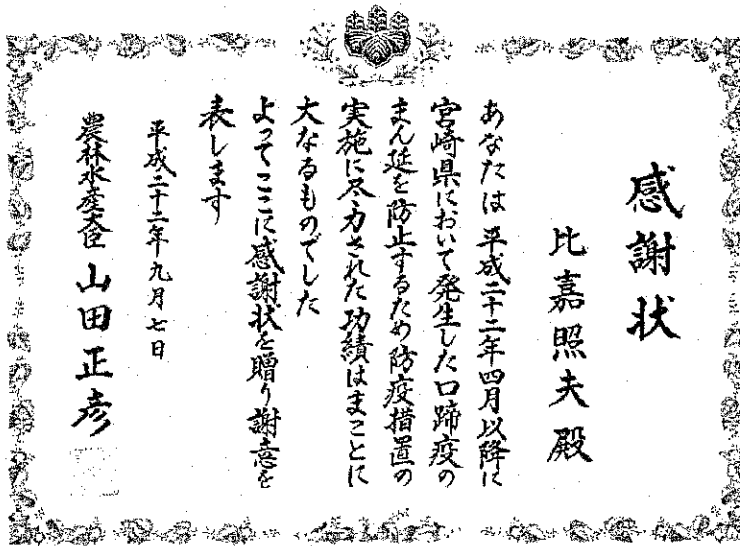 感謝状
比嘉照夫殿
あなたは平成二十二年四月以降に
宮崎県において発生した口蹄疫の
まん延を防止するため防疫措置の
実施に尽力された功績はまことに
大なるものでした
よってここに感謝状を贈り謝意を
表します
平成二十二年九月七日
農林水産大臣 山田正彦